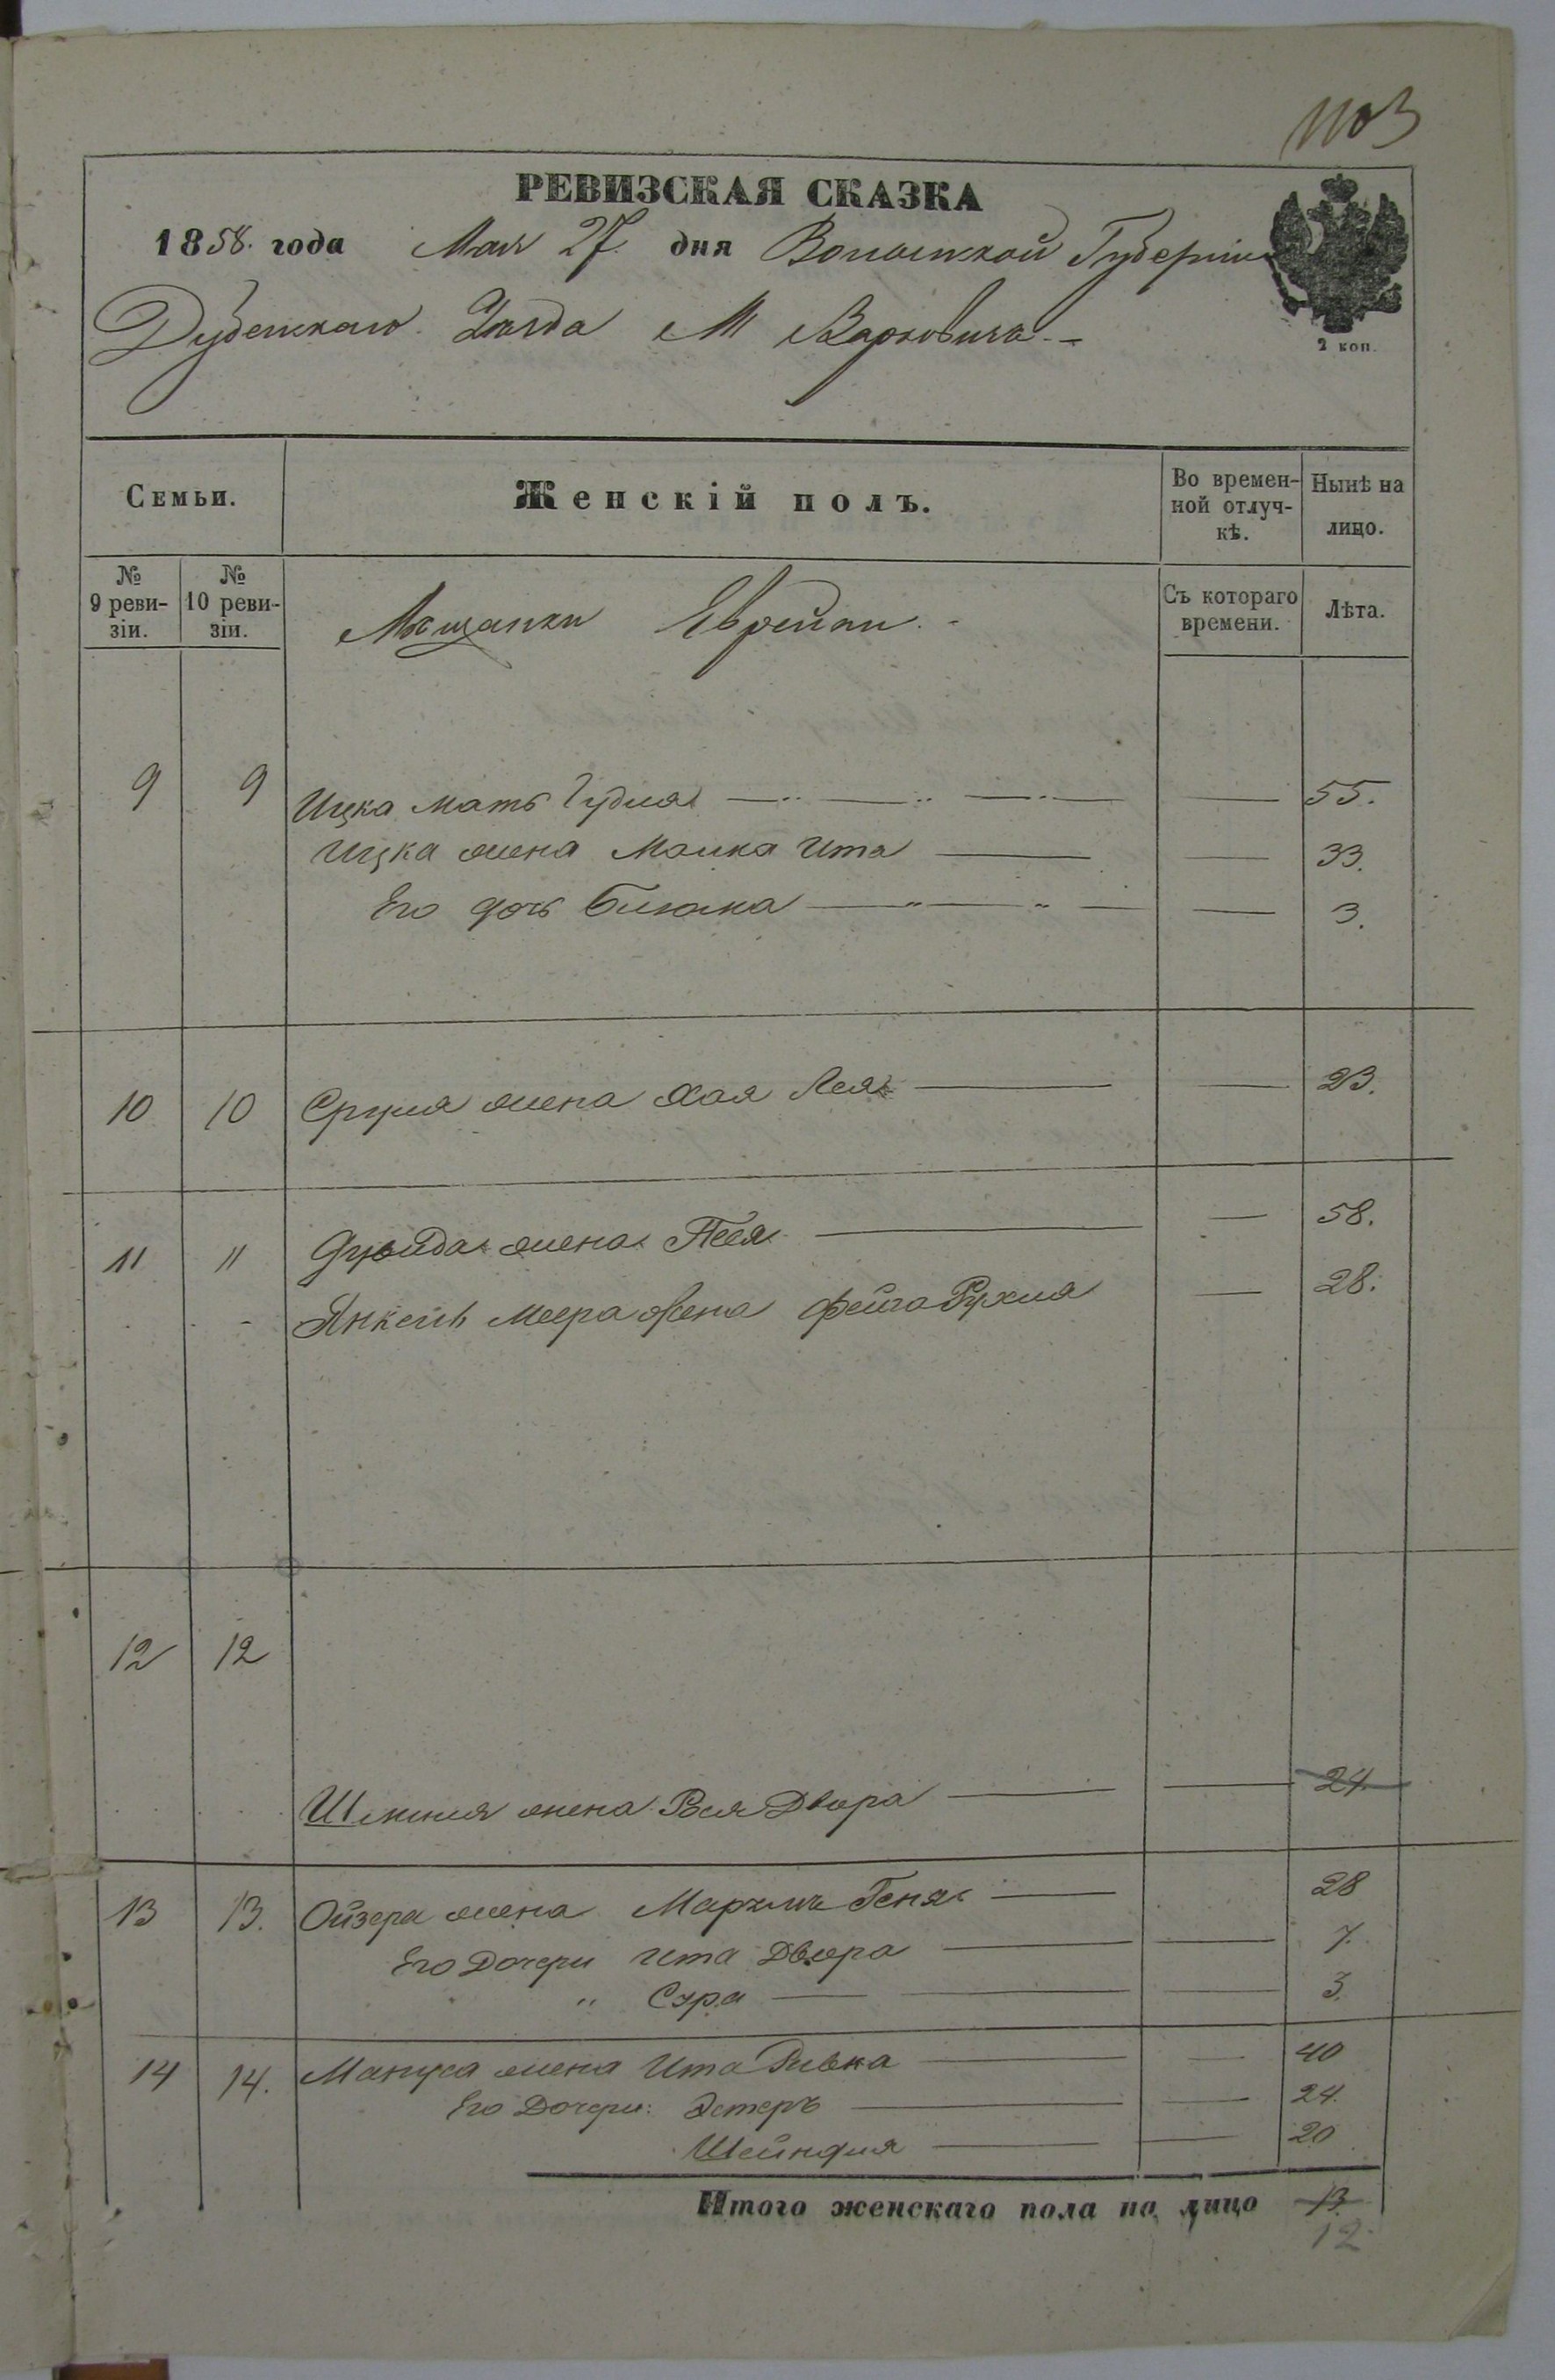 1103
РЕВИЗСКАЯ СКАЗКА
1858. года Мая 27. дня Волынской Губерніи
Дубенскаго Уѣзда М Варковичь. -
2 коп.
Семьи.
Женскій полъ.
Во времен-
ной отлуч-
кѣ.
Нынѣ на
лицо.
№
9 реви-
зіи.
№
10 реви-
зіи.
Мѣщанки Еврейки. -
Съ котораго
времени.
Лѣта.
9 9 Ицка мать Гудля — — — — — 55.
Ицка жена Малка Ита — — 33.
Его дочь Блюма — — — — 3.
10 10 Сруля жена Хая Лея — — 23.
11 11 жена Песя — — 58.
Янкель Меера жена Фейга Рухля — 28.
12 12
Шлиомы жена Рося Двора — — 24
13 13. Ойзера жена Марьямъ Геня — 28
Его Дочери Ита Двора — — 7.
" Сура — — — 3.
14 14. Мануса жена Ита Ривка — — 40
Его Дочери: Эстеръ — — 24.
Шейндля — — 20
Итого женскаго пола на лицо 13.
12